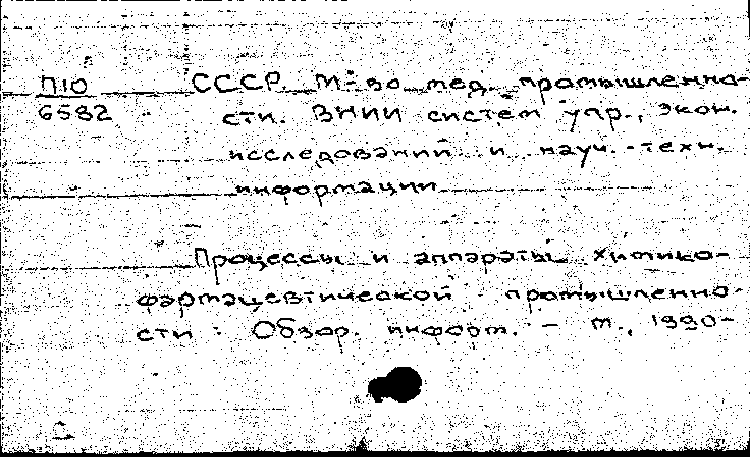 П10 СССР. М-во мед. промышленно-
6582 сти. ВНИИ систем упр., экон.
исследований и науч.-техн.
информации
Процессы и аппараты химико-
фармацевтической промышленно-
сти : Обзор. информ. - М., 1990-